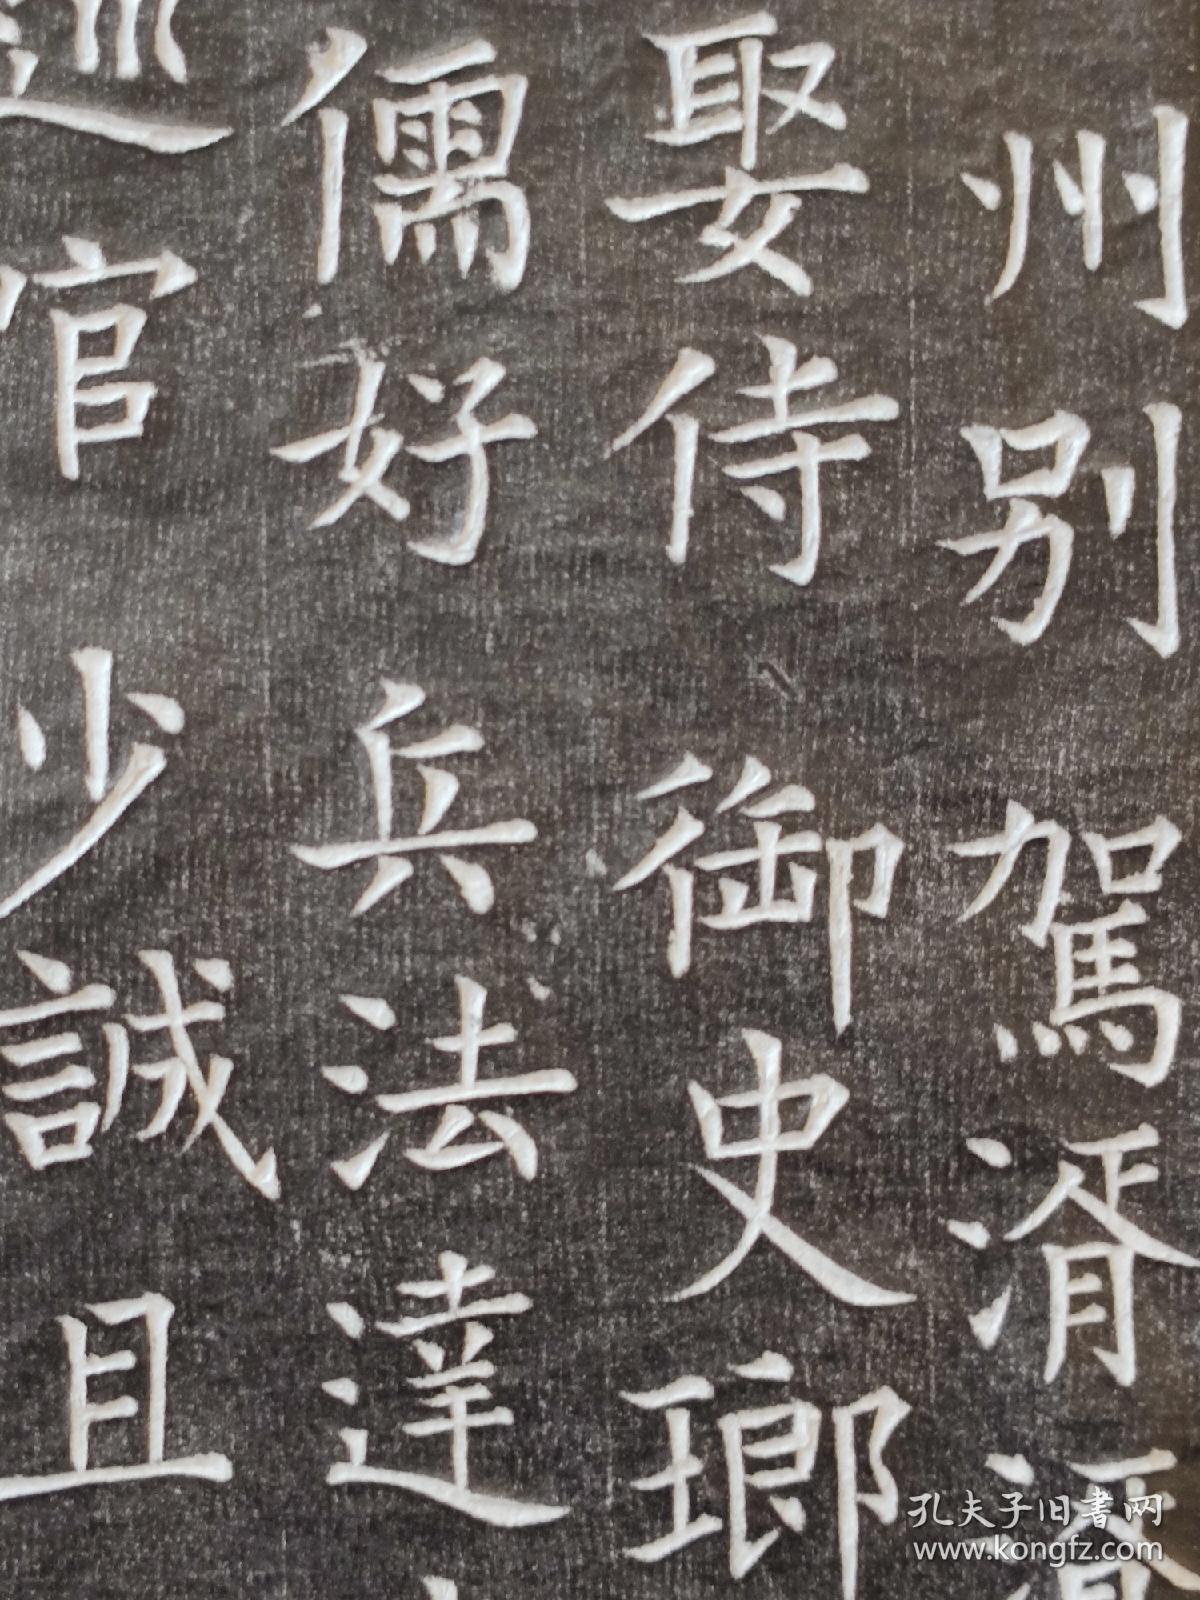 州别駕湑
娶侍御史瑯
儒好兵法達
官少誠且
孔夫子旧书网
www.kongfz.com